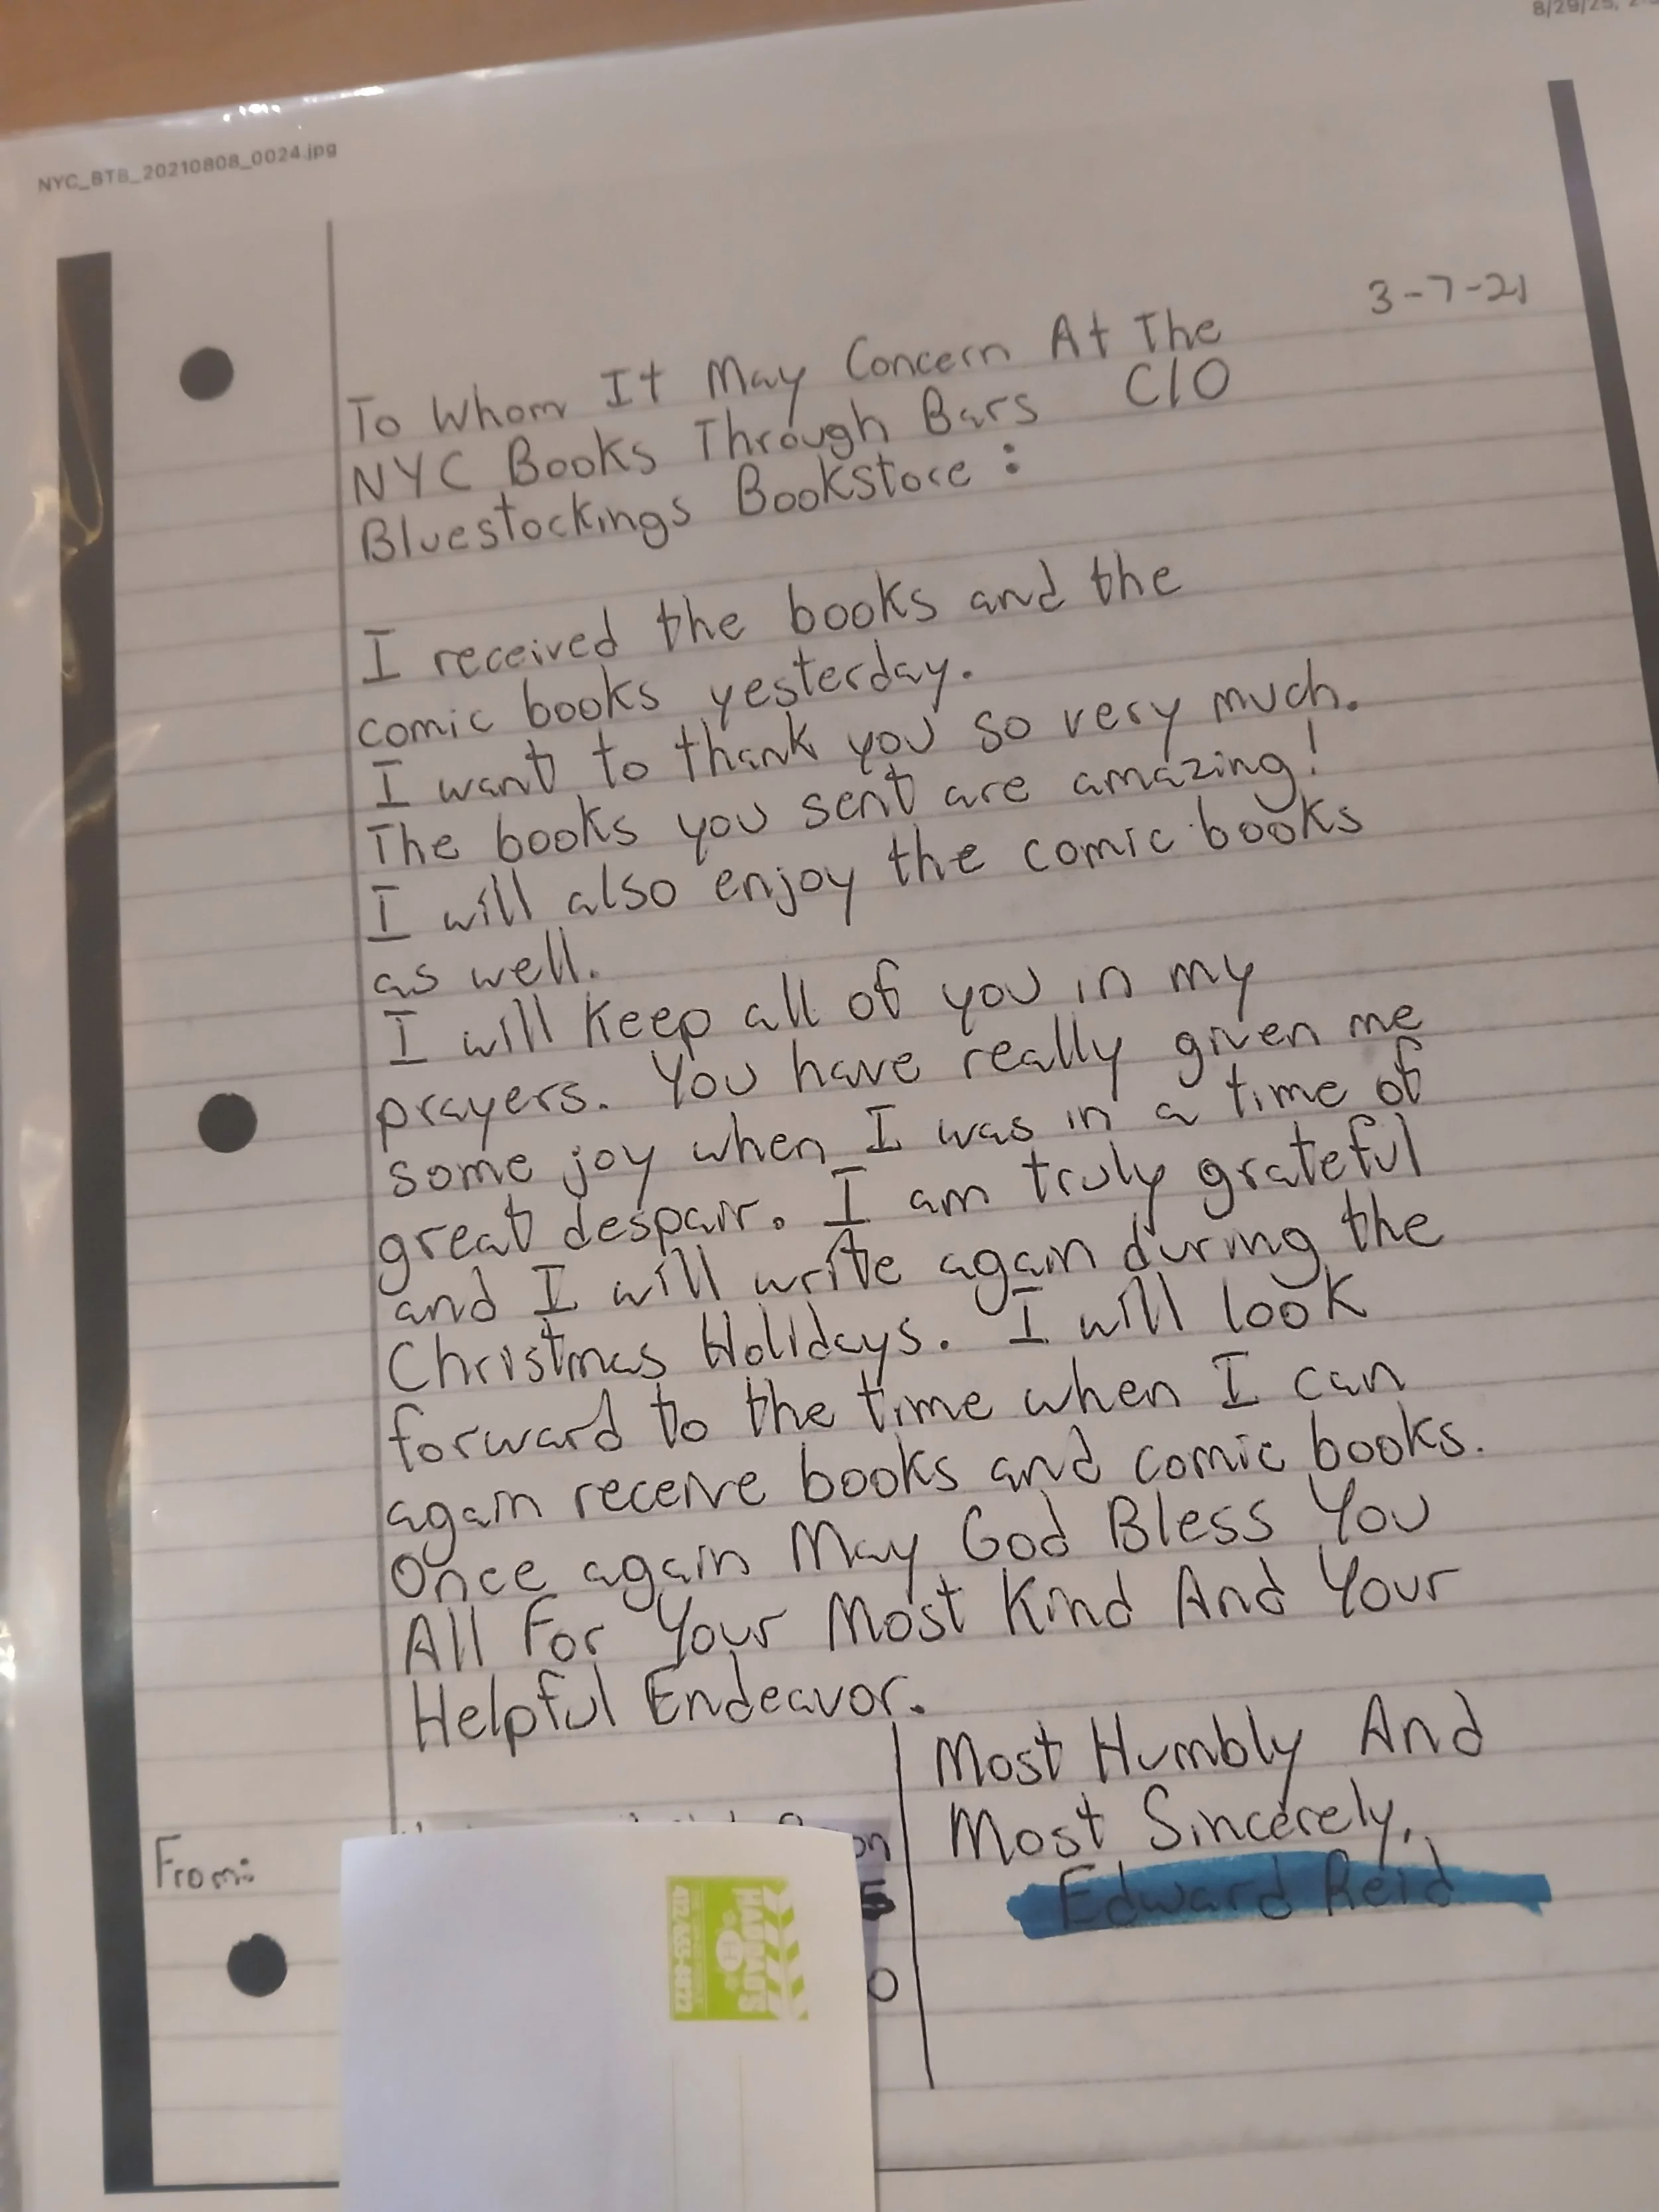 NYC_BTB_20210808_0024.jpg
3-7-21
To Whom It May Concern At The
NYC Books Through Bars C/O
Bluestockings Bookstore:
I received the books and the
comic books yesterday.
I want to thank you so very much.
The books you sent are amazing!
I will also enjoy the comic books
as well.
I will Keep all of you in my
prayers. You have really given me
some joy when I was in a time of
great despair. I am truly grateful
and I will write again during the
Christmas Holidays. I will look
forward to the time when I can
again receive books and comic books.
Once again May God Bless You
All For Your Most Kind And Your
Helpful Endeavor.
Most Humbly And
Most Sincerely,
Edward Reid
From: